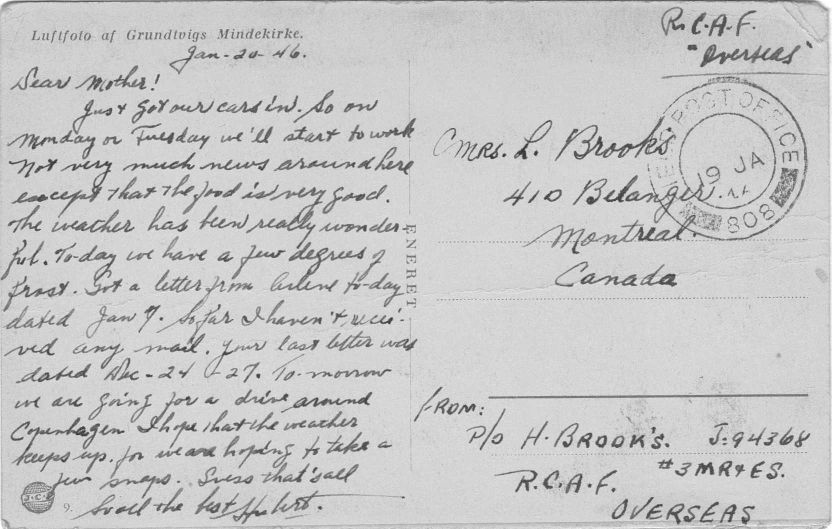 Luftfoto af Grundtvigs Mindekirke.
Jan-20-46.
Dear Mother!
Just got our cars in. So on
Monday or Tuesday we'll start to work
Not very much news around here
except that the food is very good.
The weather has been really wonder-
ful. To-day we have a few degrees of
frost. Got a letter from Arlene to-day
dated Jan 7. So far I haven't recei-
ved any mail. Your last letter was
dated Dec-24-27. To-morrow
we are going for a drive around
Copenhagen I hope that the weather
keeps up. for we are hoping to take a
few snaps. Guess that's all
So all the best Hubert.
J.C.
9.
ENERET
R.C.A.F.
"Overseas"
POST OFFICE
19 JA
808
Mrs. L. Brooks
410 Belanger.
Montreal.
Canada
FROM:
P/O H. BROOK'S. J:94368
#3 MR & ES.
R.C.A.F.
OVERSEAS